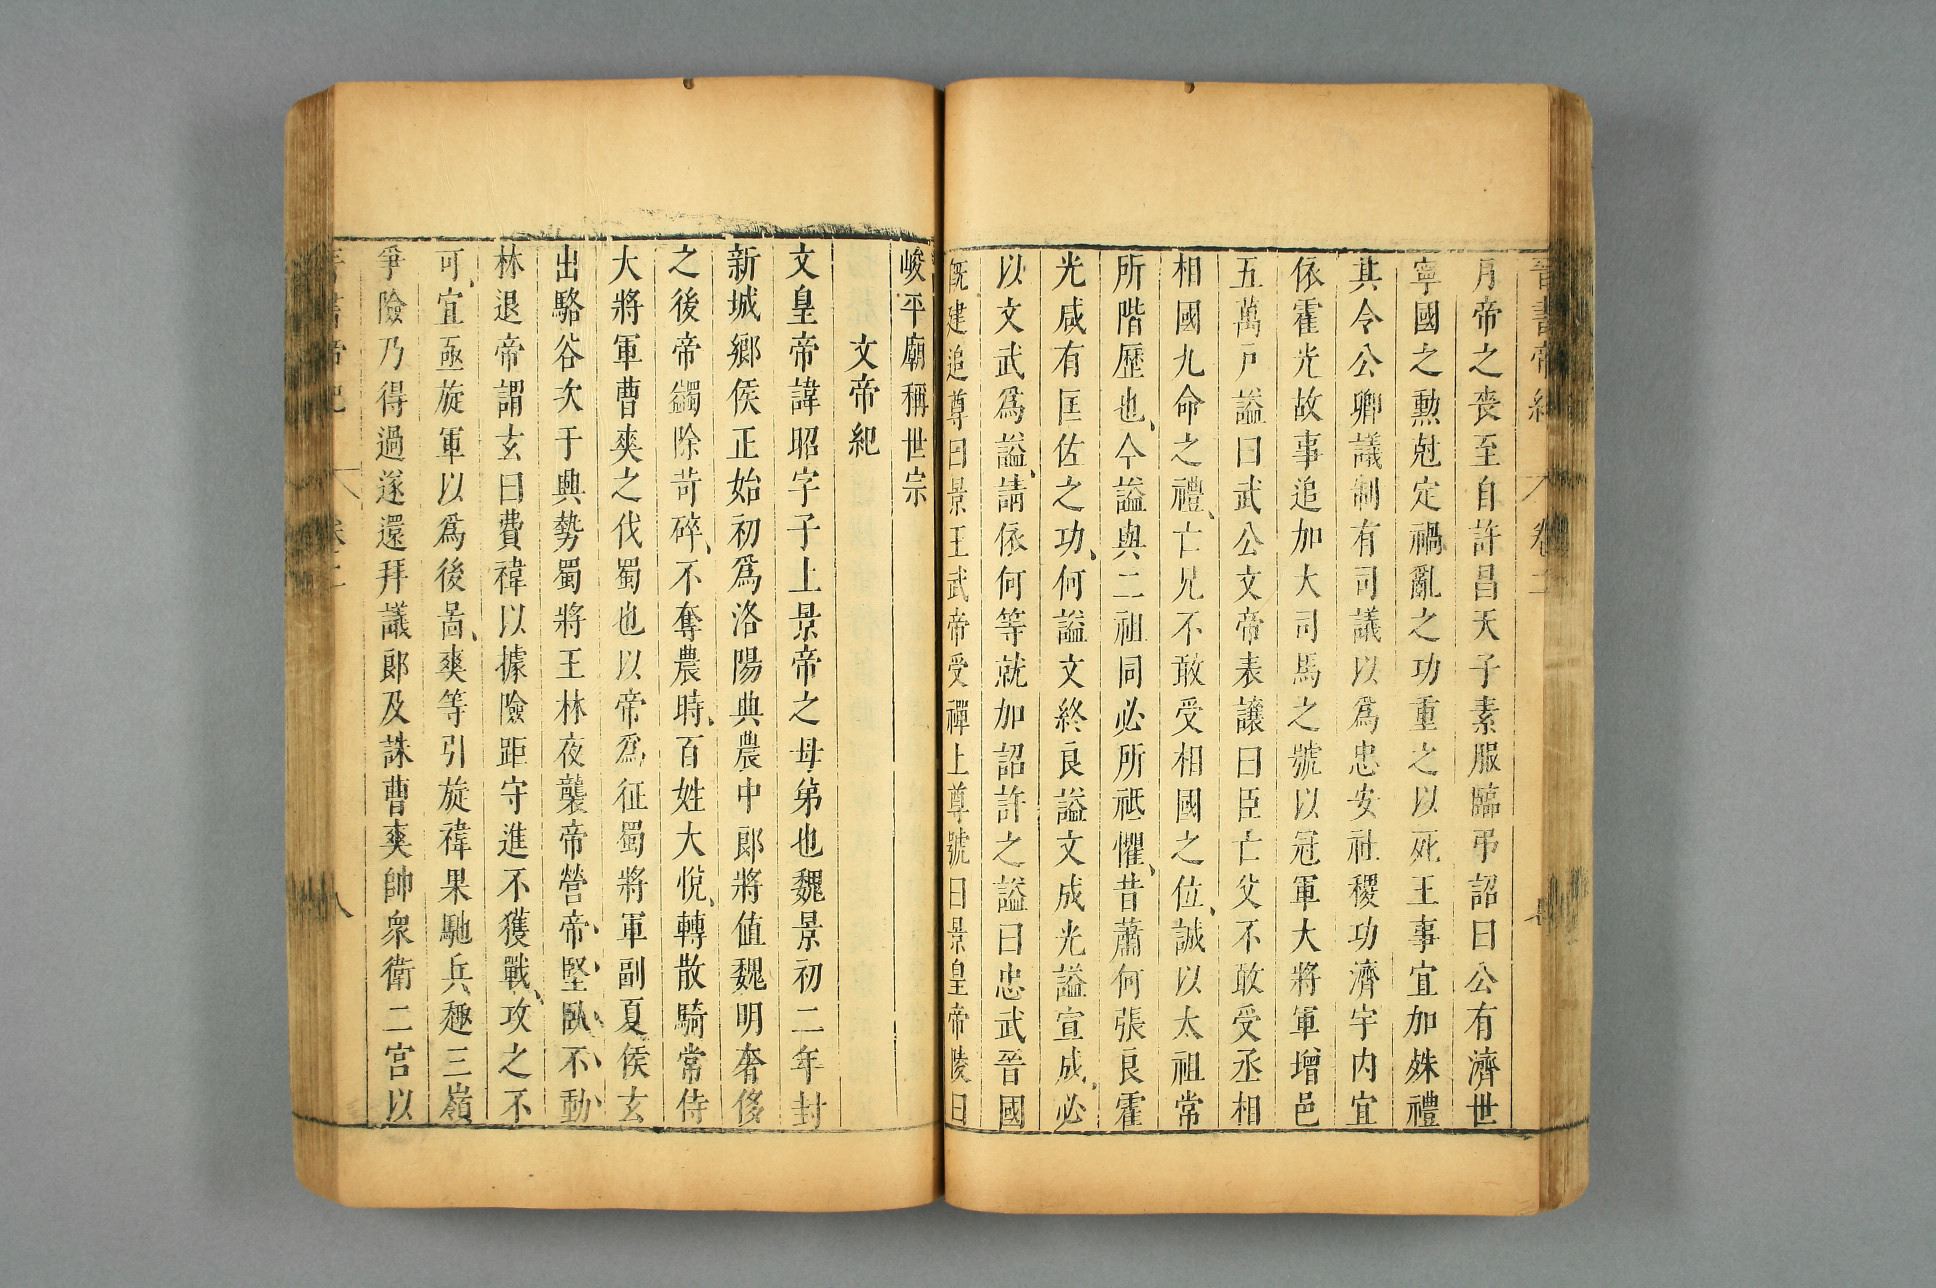 晉書帝紀 卷二
月帝之喪至自許昌天子素服臨弔詔曰公有濟世
寧國之勲尅定禍亂之功重之以死王事宜加殊禮
其令公卿議制有司議以爲忠安社稷功濟宇內宜
依霍光故事追加大司馬之號以冠軍大將軍增邑
五萬戸謚曰武公文帝表讓曰臣亡父不敢受丞相
相國九命之禮、亡兄不敢受相國之位、誠以太祖常
所階歷也、今謚與二祖同必所祗懼、昔蕭何張良霍
光咸有匡佐之功、何謚文終良謚文成光謚宣成、必
以文武爲謚、請依何等就加詔許之謚曰忠武晉國
旣建追尊曰景王武帝受禪上尊號曰景皇帝陵曰
峻平廟稱世宗
文帝紀
文皇帝諱昭字子上景帝之母弟也魏景初二年封
新城鄉侯正始初爲洛陽典農中郎將值魏明奢侈
之後帝蠲除苛碎、不奪農時、百姓大悅、轉散騎常侍
大將軍曹爽之伐蜀也以帝爲征蜀將軍副夏侯玄
出駱谷次于興勢蜀將王林夜襲帝營帝、堅、臥、不、動、
林退帝謂玄曰費禕以據險距守進不獲戰、攻之不
可、宜亟旋軍以爲後啚、爽等引旋禕果馳兵趣三嶺
爭險乃得過遂還拜議郎及誅曹爽帥衆衛二宮以
晉書帝紀 卷二 八